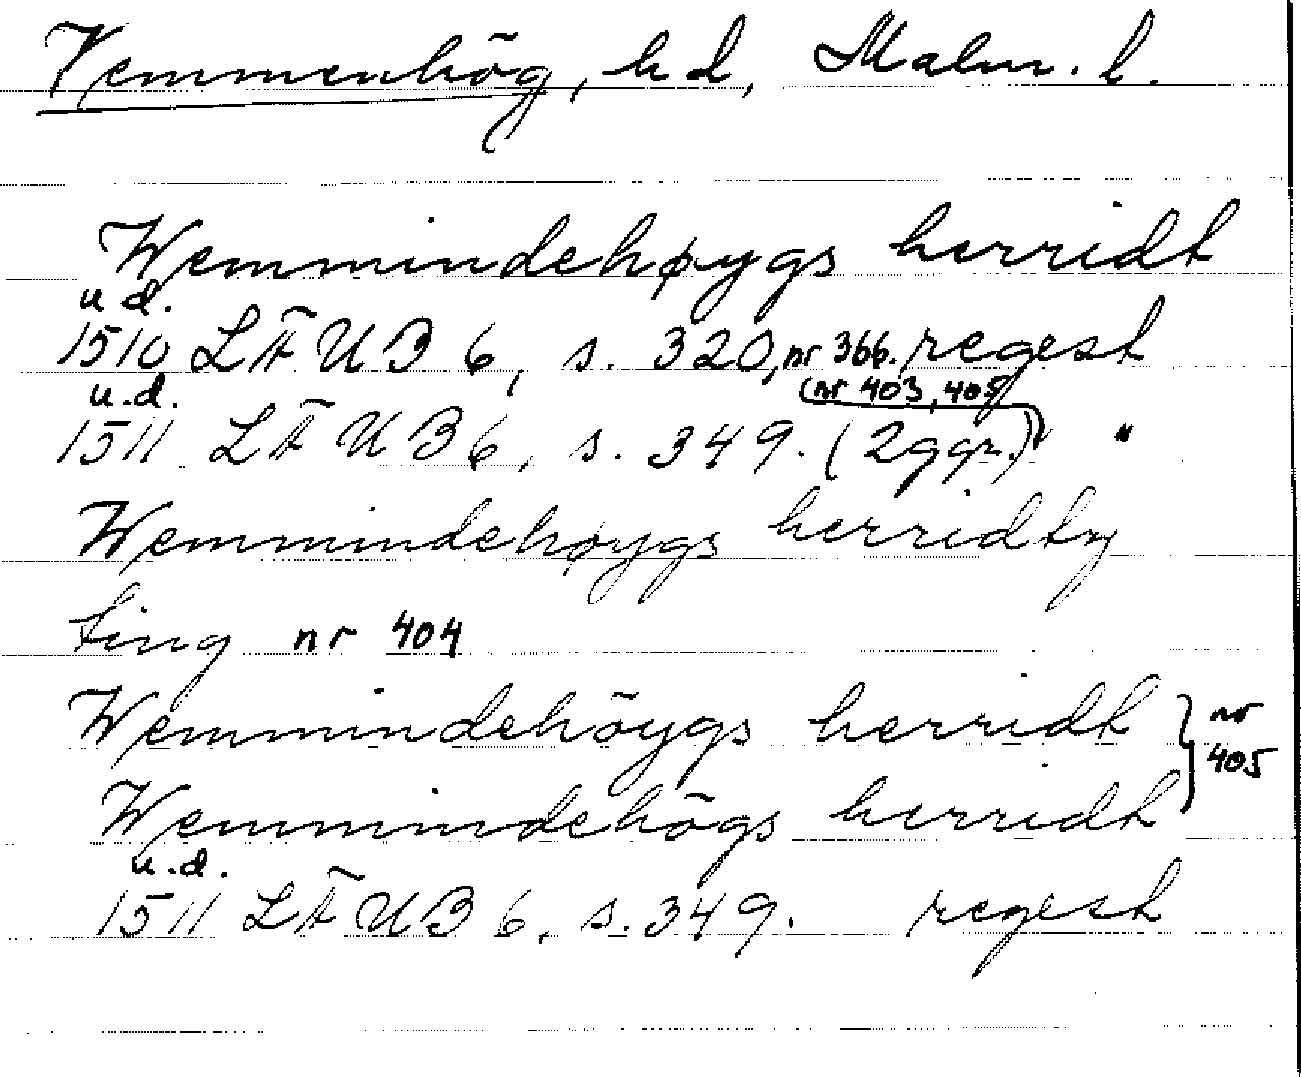 Vemmenhög, hd, Malm. l.
Wemmindehøygs herridt
u.d.
1510 LÄUB 6, s. 320, nr 366. regest
u.d. (nr 403, 405)
1511 LÄUB 6, s. 349. (2ggr.) "
Wemmindehøygs herridtz
ting nr 404
Wemmindehöygs herridt } nr
Wemmindehögs herridt } 405
u.d.
1511 LÄUB 6, s. 349. regest